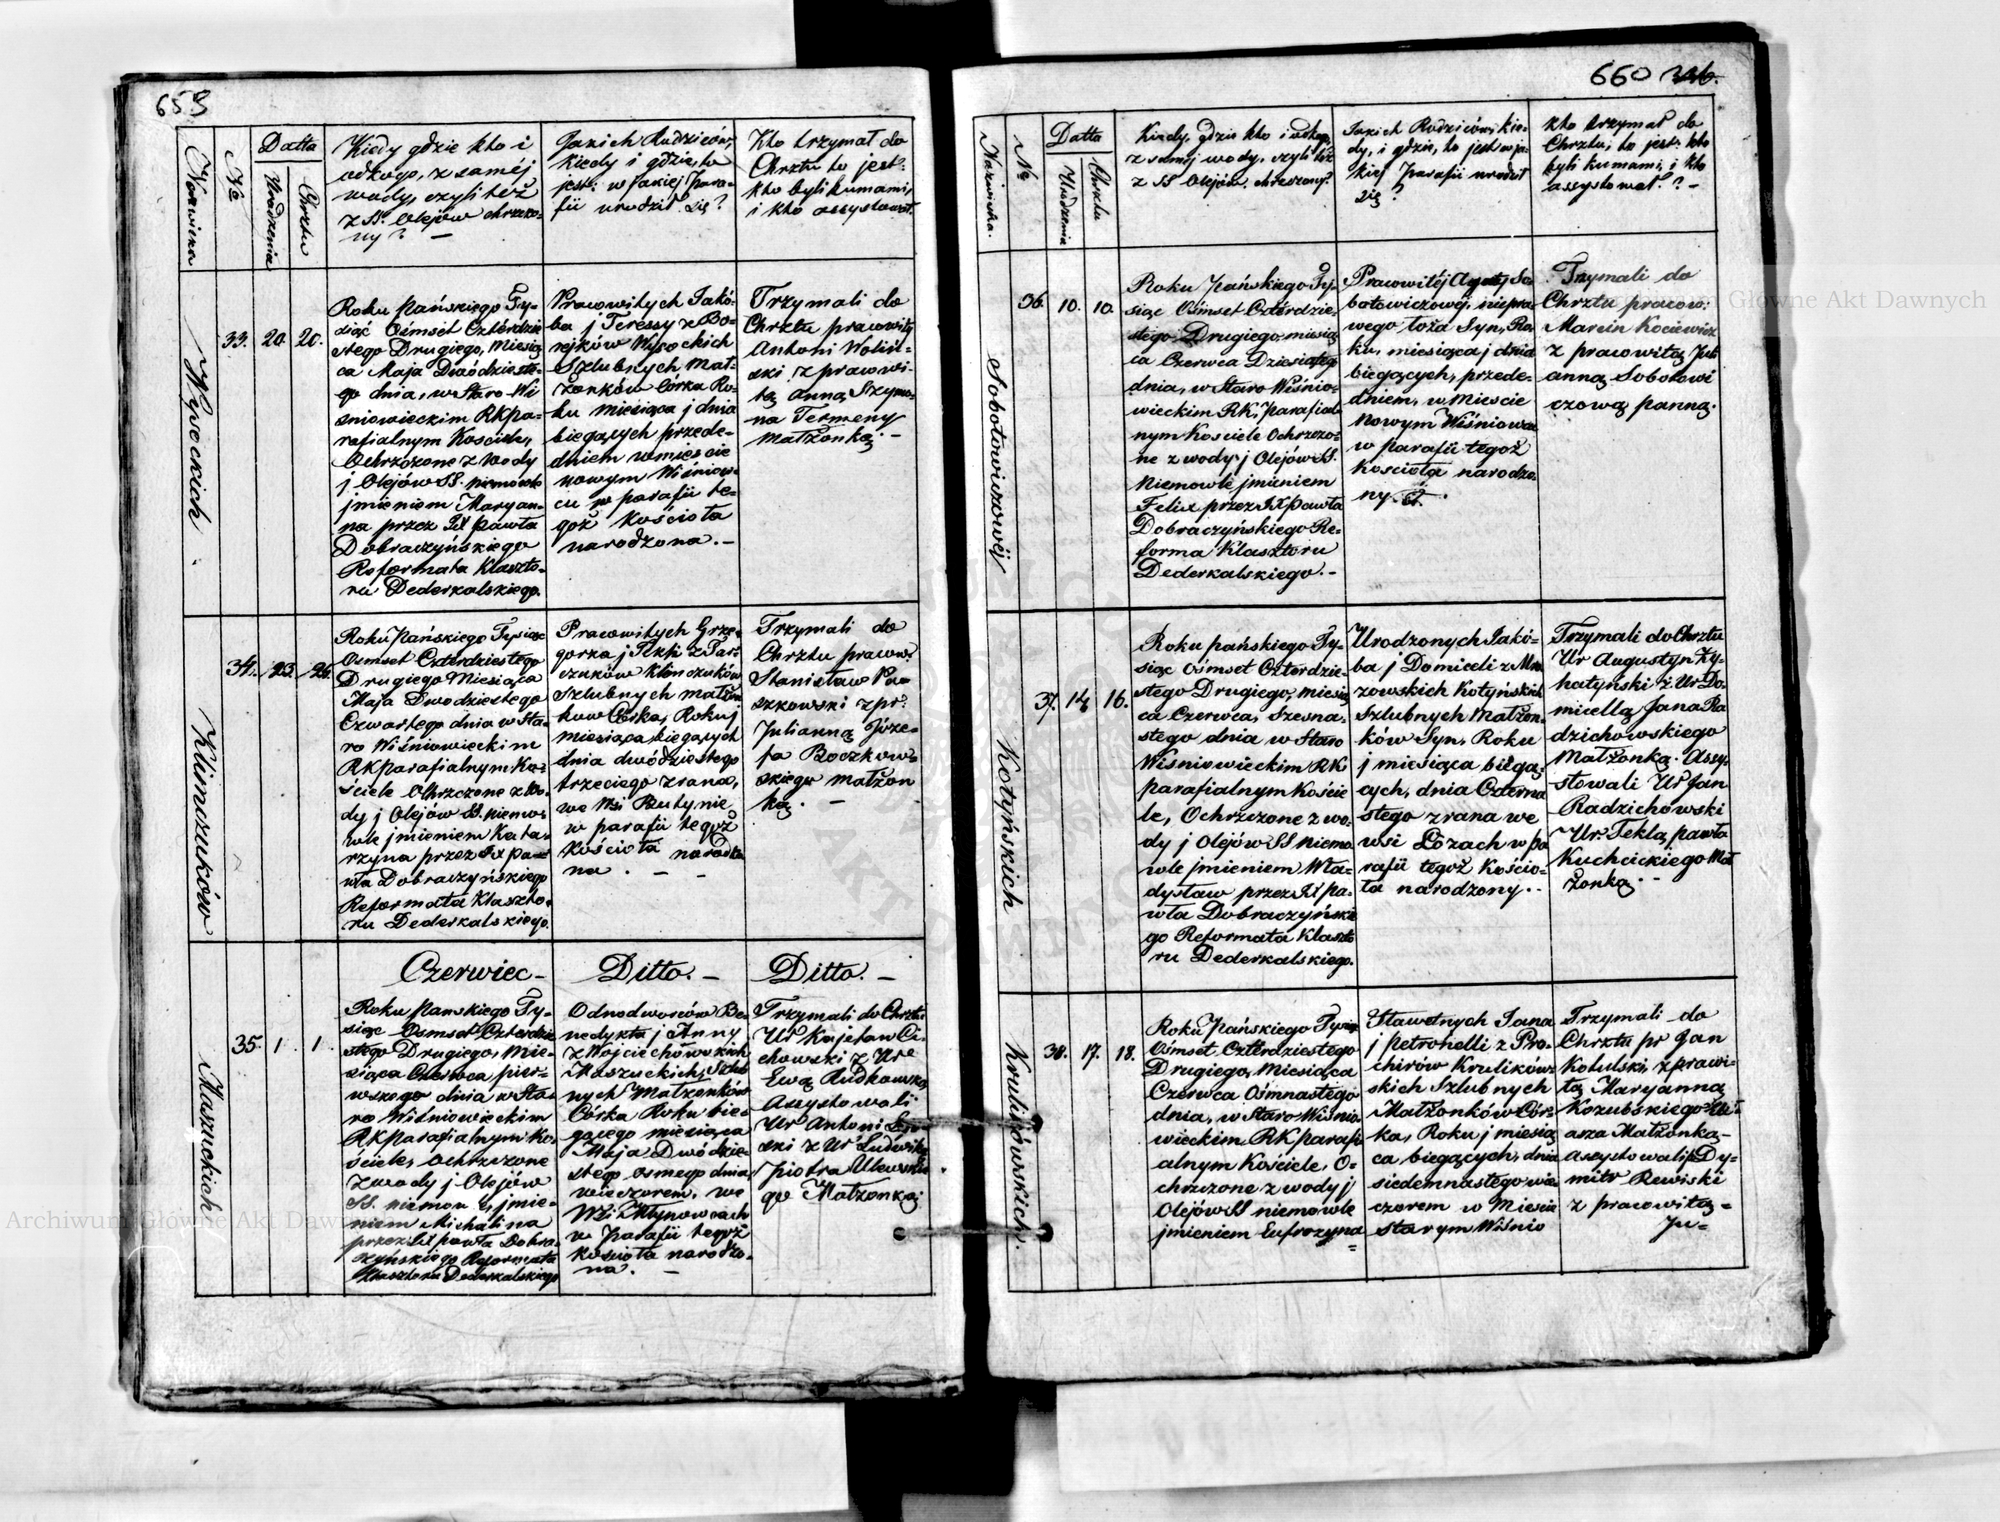 659
Nazwiska
No
Datta
Urodzenia
Chrztu
Kiedy gdzie kto i
odkogo, z saméj
wody, czyli też
z SS. Olejów chrzczo-
ny? —
Jakich Rodziców,
kiedy i gdzie, to
jest: w jakiej Para-
fii urodził się?
Kto trzymał do
Chrztu to jest:
kto byli kumami,
i kto assystował.
Wysockich
33.
20.
20.
Roku Pańskiego Ty-
siąc Ośmset Czterdzie
stego Drugiego, Miesią
ca Maja Dwódzieste-
go dnia, w Staro-Wi
śniowieckim RK pa-
rafialnym Kosciele,
Ochrzczone z wody
j Olejów SS. niemowle
jmieniem Maryan-
na przez IX Pawła
Dobraczyńskiego
Reformata Klaszto-
ru Dederkalskiego.
Pracowitych Jakó-
ba j Teressy z Bo-
rejków Wysockich
Szlubnych Mał-
żonków Córka Ro-
ku miesiąca j dnia
biegących przede-
dniem w miescie
nowym Wiśniow-
cu w parafii te-
goż Kościoła
narodzona. —
Trzymali do
Chrztu pracowity
Antoni Woliń-
ski z pracowi-
tą Anną Szymo-
na Termeny
małżonką. —
Klimczuków
34.
23.
24.
Roku Pańskiego Tysiąc
Osmset Czterdziestego
Drugiego Miesiąca
Maja Dwodziestego
Czwartego dnia w Sta-
ro Wiśniowieckim
RK parafialnym Ko-
ściele Ochrzczone z wo-
dy j Olejów SS. niemo-
wle jmieniem Kata-
rzyna przez IX Pa-
wła Dobraczyńskiego
Reformata Klaszto-
ru Dederkalskiego.
Pracowitych Grze-
gorza j Tekli z Par-
czuków Klimczuków
Szlubnych małżon
kow Córka, Roku j
miesiąca biegących
dnia dwódziestego
trzeciego zrana,
we Wsi Butynie
w parafii tegoż
Kościoła narodzo
na. — —
Trzymali do
Chrztu pracow:
Stanisław Pa-
szkowski z pr:
Julianną Józe-
fa Boczkow-
skiego małżon
ką. —
Maszuckich
35.
1.
1.
Czerwiec —
Roku Pańskiego Ty-
siąc Osmset Czterdzie
stego Drugiego, Mie-
siąca Czerwca pier-
wszego dnia w Sta-
ro Wiśniowieckim
RK parafialnym Ko-
ściele, Ochrzczone
z wody j Olejów
SS. niemowlę jmie-
niem Michalina
przez IX Pawła Dobra-
czyńskiego Reformata
Klasztoru Dederkalskiego
Ditto. —
Odnodworców Be-
nedykta j Anny
z Wojciechowskich
Maszuckich, Szlub
nych Małżonków
Córka Roku bie-
gącego miesiąca
Maja Dwódzie-
stego osmego dnia
wieczorem, we
Wsi Młynowcach
w Parafii tegoż
Kościoła narodzo-
na. —
Ditto. —
Trzymali do Chrztu
Ur Kajetan Ci-
chowski z Ur
Ewą Rudkowską
Assystowali
Ur Antoni
ski z Ur Ludwiką
Piotra Ulewskie
go Małżonką.
660
Nazwiska.
No
Datta
Urodzenia
Chrztu
Kiedy, gdzie kto i odkogo
z samej wody, czyli też
z SS Olejów chrzczony?
Jakich Rodziców, kie-
dy, i gdzie, to jest: w ja-
kiej Parafii urodził
się?
Kto trzymał do
Chrztu, to jest: kto
byli kumami, i kto
assystował? —
Sobotowiczowéj
36.
10.
10.
Roku Pańskiego Ty-
siąc Ośmset Czterdzie-
stego Drugiego, miesią
ca Czerwca Dziesiątego
dnia, w Staro Wiśnio-
wieckim RK. Parafial
nym Kosciele Ochrzczo-
ne z wody j Olejów SS.
Niemowle jmieniem
Felix przez IX Pawła
Dobraczyńskiego Re-
forma Klasztoru
Dederkalskiego. —
Pracowitéj Agaty So
botowiczowej, niepra-
wego łoża Syn, Ro-
ku, miesiąca j dnia
biegących, przede-
dniem, w Miescie
Nowym Wiśniowcu
w parafii tegoż
Kościoła narodzo-
ny.
Trzymali do
Chrztu pracow:
Marcin Kociewicz
z pracowitą Juli
anną Sobotowi
czową panną.
Kotyńskich
37.
14.
16.
Roku Pańskiego Ty-
siąc Ośmset Czterdzie-
stego Drugiego, miesią
ca Czerwca, Szesna-
stego dnia w Staro
Wiśniowieckim RK
parafialnym Koscie
le, Ochrzczone z wo-
dy j Olejów SS niemo
wle jmieniem Wła-
dysław przez IX Pa-
wła Dobraczyńskie
go Reformata Klaszto
ru Dederkalskiego.
Urodzonych Jakó-
ba j Domiceli z Mro
zowskich Kotyńskich
Szlubnych Małżon-
ków Syn, Roku
j miesiąca biegą-
cych, dnia Czterna
stego zrana we
wsi Łozach w pa
rafii tegoż Kościo-
ła narodzony. .
Trzymali do Chrztu
Ur Augustyn Zy-
chatyński z Ur Do-
micellą Jana Ra
dzichowskiego
Małżonką. Assy-
stowali Ur Jan
Radzichowski
z Ur Teklą Pawła
Kuchcickiego Mał
żonką. —
Krulikowskich.
38.
17.
18.
Roku Pańskiego Tysiąc
Ośmset Czterdziestego
Drugiego, Miesiąca
Czerwca Ośmnastego
dnia, w Staro Wiśnio
wieckim RK parafi
alnym Kosciele, O-
chrzczone z wody j
Olejów SS niemowle
jmieniem Eufrozyna
=
Sławetnych Jana
j Petronelli z Pro-
chirów Krulikow-
skich Szlubnych
Małżonków Cór-
ka, Roku j miesią
ca biegących, dnia
siedemnastego wie-
czorem w Miescie
starym Wiśnio
Trzymali do
Chrztu pr Jan
Kotulski, z prawi-
tą Maryanną
Kozubskiego
asza Małżonką —
assystowali Dy-
mitr Rewiski
z pracowitą =
Ju=
Archiwum Główne Akt Dawnych
Archiwum Główne Akt Dawnych